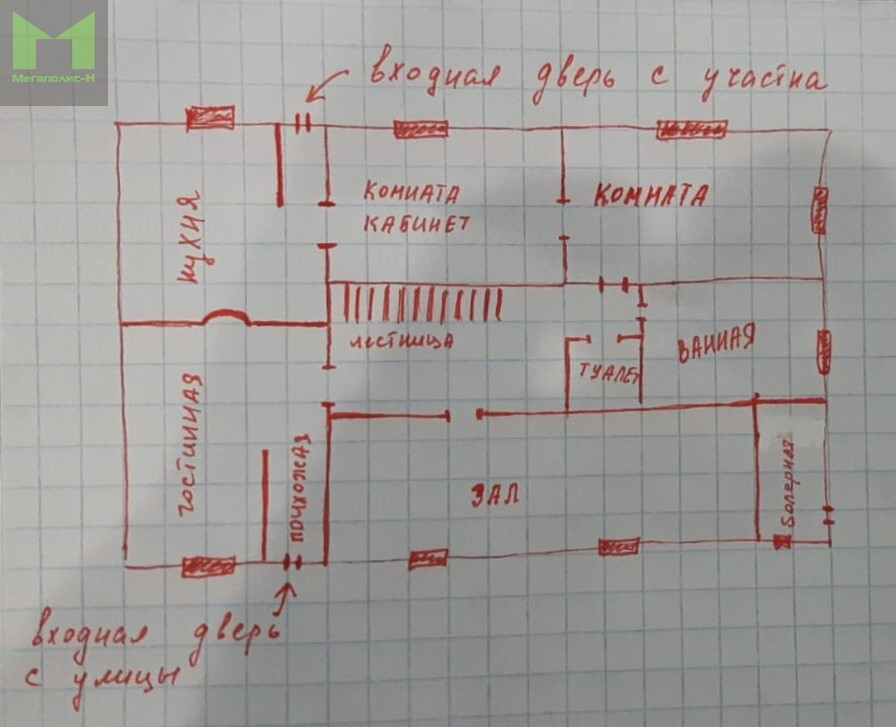 Мегаполис-Н
входная дверь с участка
КОМНАТА
КАБИНЕТ
КОМНАТА
КУХНЯ
ЛЕСТНИЦА
ВАННАЯ
ТУАЛЕТ
ГОСТИННАЯ
ПРИХОЖАЯ
ЗАЛ
Болерная
входная дверь
с улицы